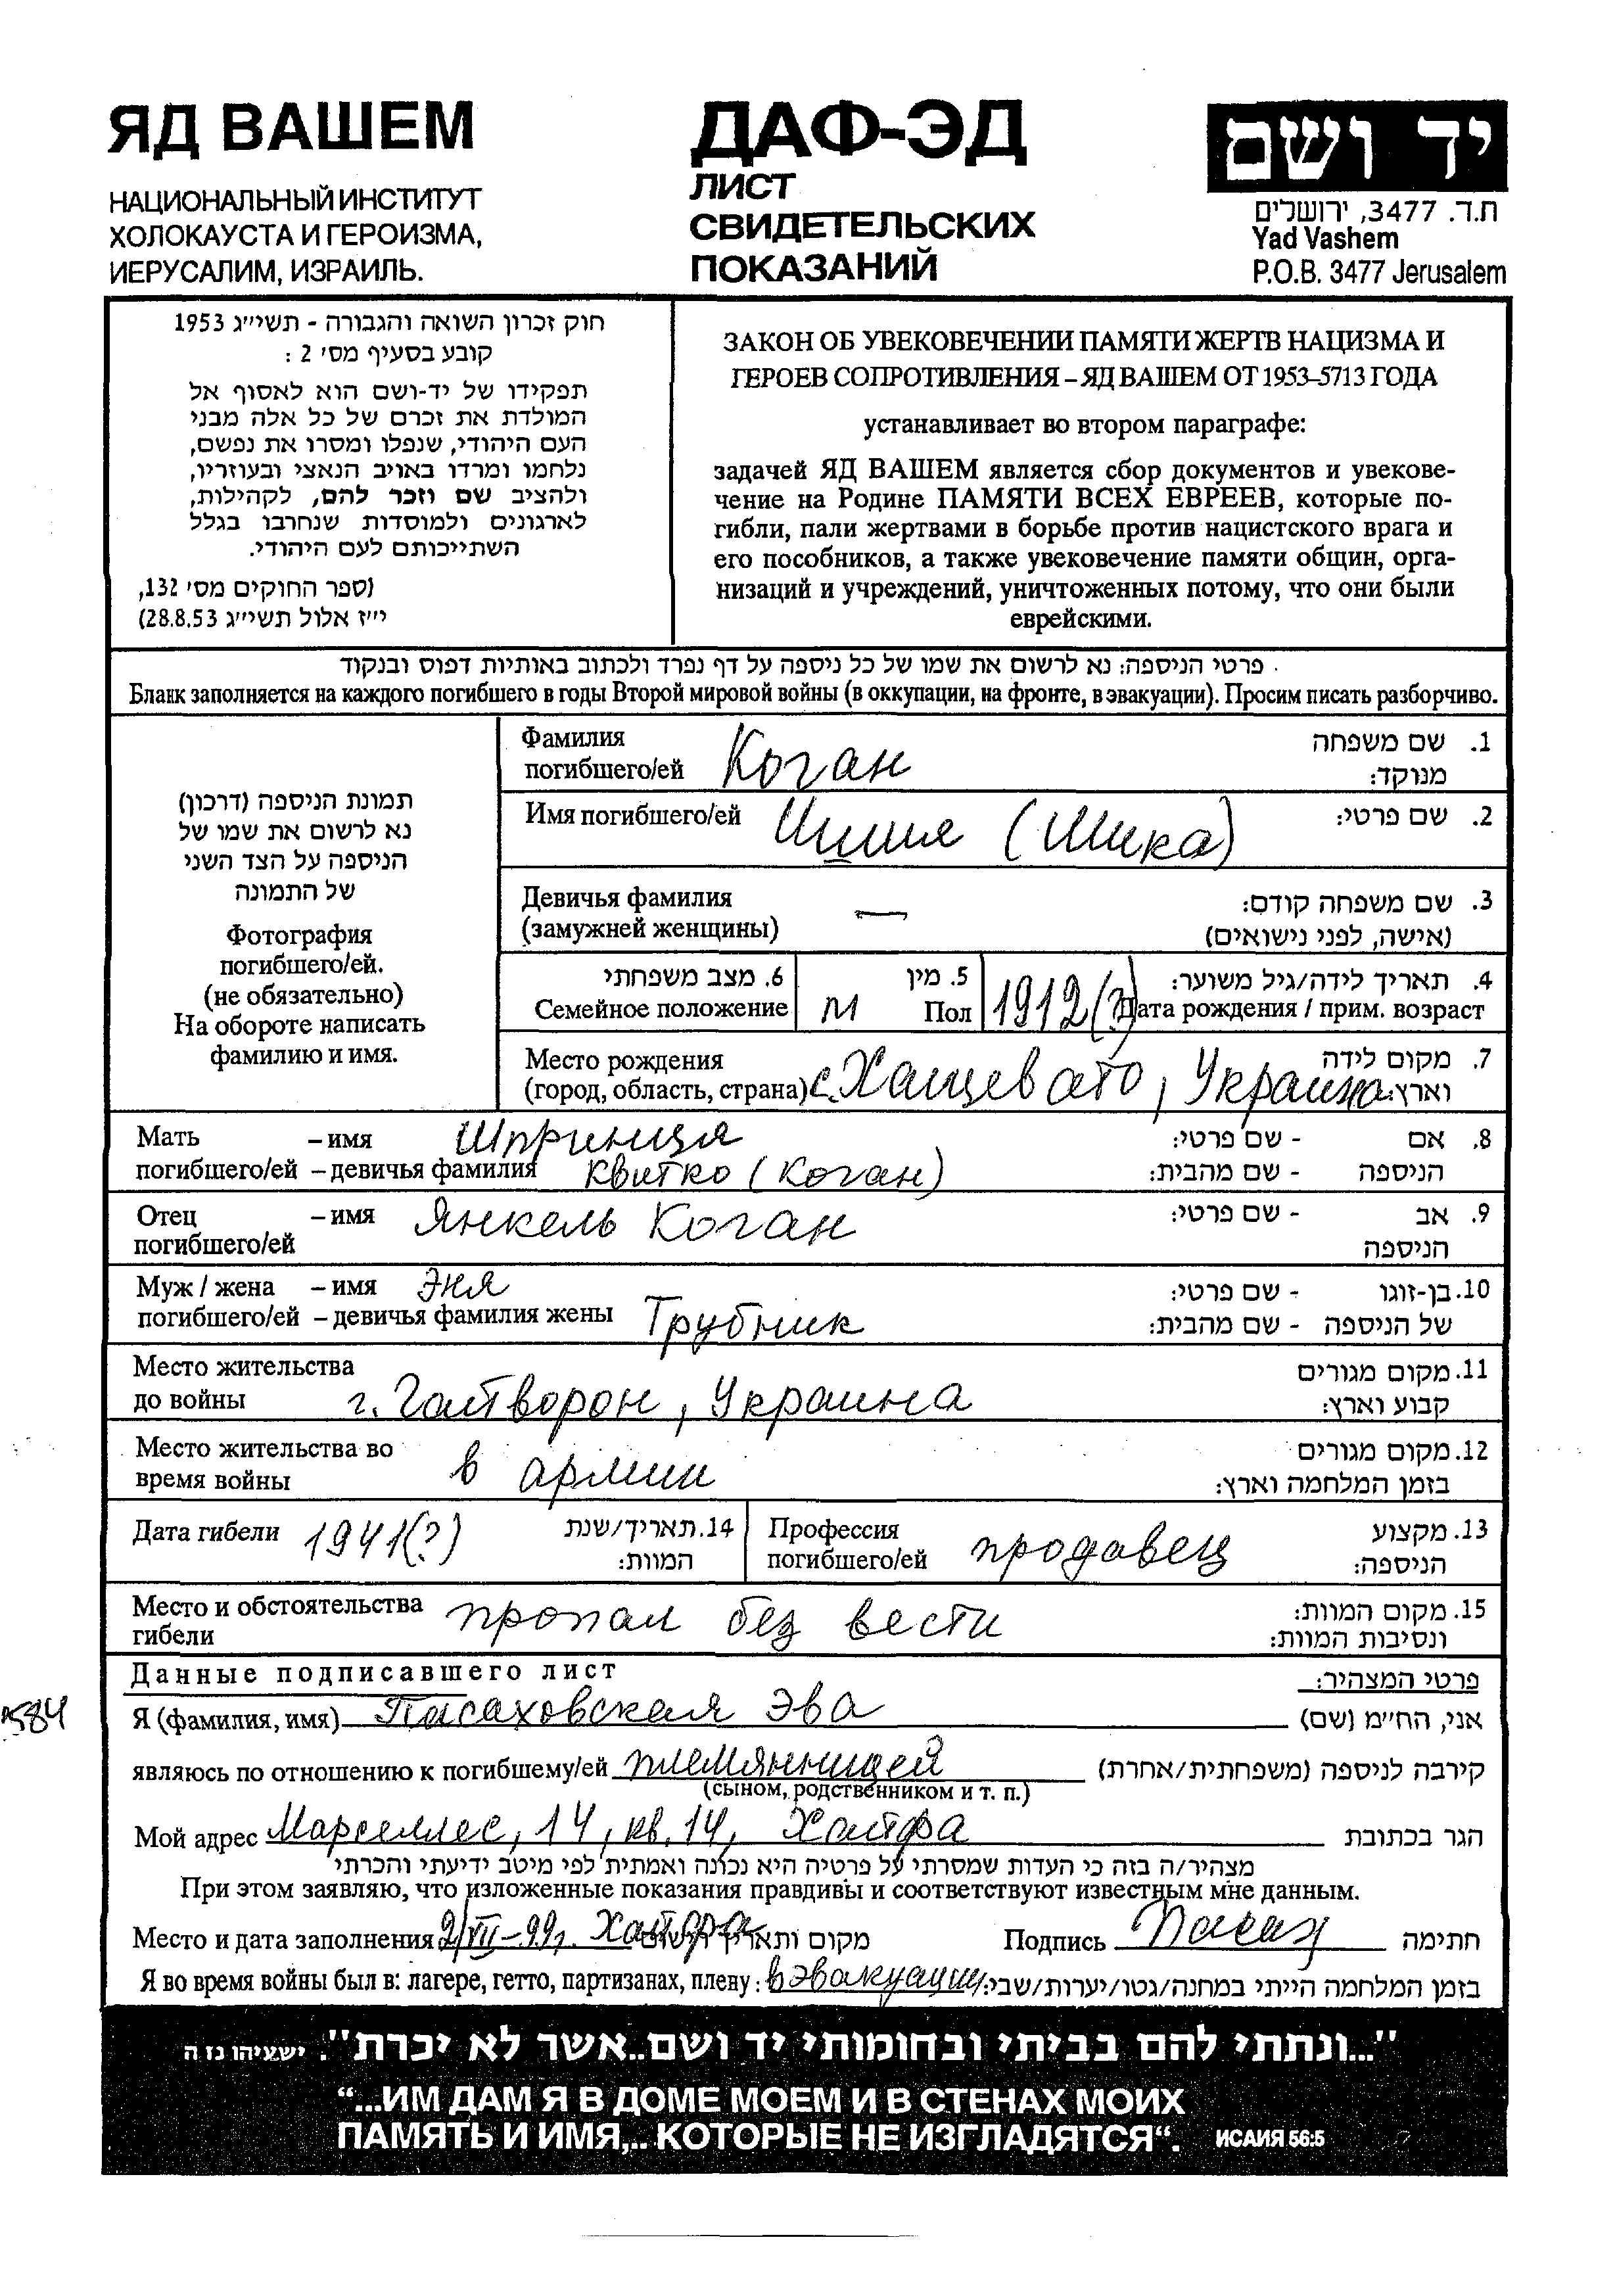 ЯД ВАШЕМ
НАЦИОНАЛЬНЫЙ ИНСТИТУТ
ХОЛОКАУСТА И ГЕРОИЗМА,
ИЕРУСАЛИМ, ИЗРАИЛЬ.
ДАФ-ЭД
ЛИСТ
СВИДЕТЕЛЬСКИХ
ПОКАЗАНИЙ
יד ושם
ת.ד. 3477, ירושלים
Yad Vashem
P.O.B. 3477 Jerusalem
חוק זכרון השואה והגבורה - תשי״ג 1953
קובע בסעיף מס׳ 2 :
תפקידו של יד-ושם הוא לאסוף אל
המולדת את זכרם של כל אלה מבני
העם היהודי, שנפלו ומסרו את נפשם,
נלחמו ומרדו באויב הנאצי ובעוזריו,
ולהציב שם וזכר להם, לקהילות,
לארגונים ולמוסדות שנחרבו בגלל
השתייכותם לעם היהודי.
(ספר החוקים מס׳ 132,
י״ז אלול תשי״ג 28.8.53)
ЗАКОН ОБ УВЕКОВЕЧЕНИИ ПАМЯТИ ЖЕРТВ НАЦИЗМА И
ГЕРОЕВ СОПРОТИВЛЕНИЯ – ЯД ВАШЕМ ОТ 1953–5713 ГОДА
устанавливает во втором параграфе:
задачей ЯД ВАШЕМ является сбор документов и увекове-
чение на Родине ПАМЯТИ ВСЕХ ЕВРЕЕВ, которые по-
гибли, пали жертвами в борьбе против нацистского врага и
его пособников, а также увековечение памяти общин, орга-
низаций и учреждений, уничтоженных потому, что они были
еврейскими.
פרטי הניספה: נא לרשום את שמו של כל ניספה על דף נפרד ולכתוב באותיות דפוס ובנקוד
Бланк заполняется на каждого погибшего в годы Второй мировой войны (в оккупации, на фронте, в эвакуации). Просим писать разборчиво.
תמונת הניספה (דרכון)
נא לרשום את שמו של
הניספה על הצד השני
של התמונה
Фотография
погибшего/ей.
(не обязательно)
На обороте написать
фамилию и имя.
Фамилия
погибшего/ей Коган
1. שם משפחה
מנוקד:
Имя погибшего/ей Шишя (Шика) 2. שם פרטי:
Девичья фамилия
(замужней женщины) —
3. שם משפחה קודם:
(אישה, לפני נישואים)
6. מצב משפחתי
Семейное положение
5. מין
м Пол
4. תאריך לידה/גיל משוער:
1912(?) Дата рождения / прим. возраст
Место рождения
(город, область, страна) с. Хащевато, Украина
7. מקום לידה
וארץ:
Мать – имя Шпринця 8. אם - שם פרטי:
погибшего/ей – девичья фамилия Квитко (Коган) הניספה - שם מהבית:
Отец – имя Янкель Коган 9. אב - שם פרטי:
погибшего/ей הניספה
Муж / жена – имя Эня 10. בן-זוגו - שם פרטי:
погибшего/ей – девичья фамилия жены Трубник של הניספה - שם מהבית:
Место жительства 11. מקום מגורים
до войны г. Гайворон, Украина קבוע וארץ:
Место жительства во 12. מקום מגורים
время войны в армии בזמן המלחמה וארץ:
Дата гибели 1941(?)
14. תאריך/שנת
המוות:
Профессия
погибшего/ей продавец
13. מקצוע
הניספה:
Место и обстоятельства 15. מקום המוות:
гибели пропал без вести ונסיבות המוות:
Данные подписавшего лист פרטי המצהיר:
Я (фамилия, имя) Пасаховская Эва אני, הח״מ (שם)
являюсь по отношению к погибшему/ей племянницей קירבה לניספה (משפחתית/אחרת)
(сыном, родственником и т. п.)
Мой адрес Марселлес, 14, кв. 14, Хайфа הגר בכתובת
מצהיר/ה בזה כי העדות שמסרתי על פרטיה היא נכונה ואמתית לפי מיטב ידיעתי והכרתי
При этом заявляю, что изложенные показания правдивы и соответствуют известным мне данным.
Место и дата заполнения 2/VII-99г. Хайфа מקום ותאריך הרשום Подпись Пасах חתימה
Я во время войны был в: лагере, гетто, партизанах, плену: в эвакуации בזמן המלחמה הייתי במחנה/גטו/יערות/שבי:
"...ונתתי להם בביתי ובחומותי יד ושם...אשר לא יכרת". ישעיהו נז ה
“...ИМ ДАМ Я В ДОМЕ МОЕМ И В СТЕНАХ МОИХ
ПАМЯТЬ И ИМЯ,.. КОТОРЫЕ НЕ ИЗГЛАДЯТСЯ“. ИСАИЯ 56:5